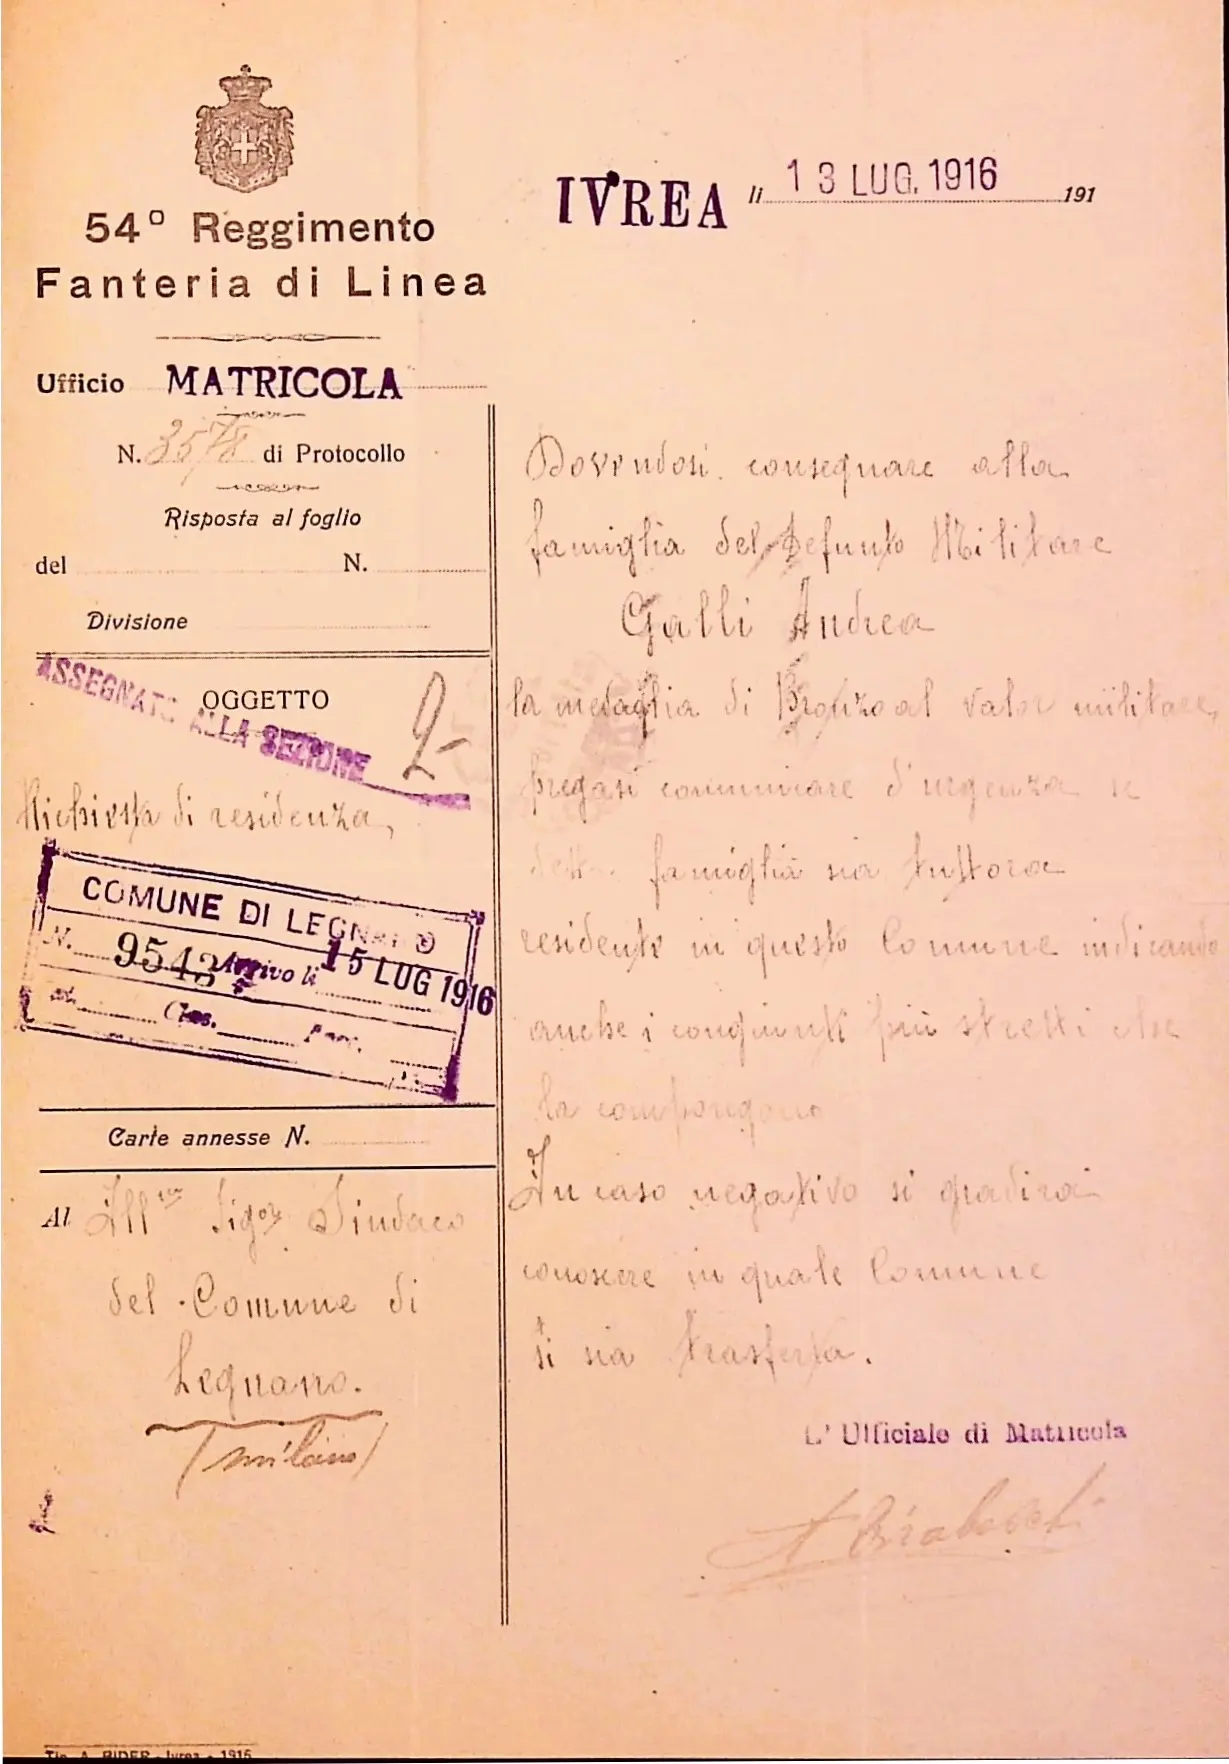 54° Reggimento
Fanteria di Linea
Ufficio MATRICOLA
N. 3578 di Protocollo
Risposta al foglio
del N.
Divisione
ASSEGNATO ALLA SEZIONE 2-
OGGETTO
Richiesta di residenza,
COMUNE DI LEGNANO
N. 9543 Arrivo li 15 LUG 1916
Cat. Clas. Fasc.
Carte annesse N.
Al Ill.mo Sigor Sindaco
del Comune di
Legnano.
(Milano)
IVREA li 13 LUG. 1916 191
Dovendosi consegnare alla
famiglia del defunto Militare
Galli Andrea
la medaglia di Bronzo al valor militare,
pregasi comunicare d'urgenza se
detta famiglia sia tuttora
residente in questo Comune indicando
anche i congiunti più stretti che
la compongono
In caso negativo si gradirà
conoscere in quale Comune
si sia trasferta.
L'Ufficiale di Matricola
Tip. A. BIDER - Ivrea - 1916